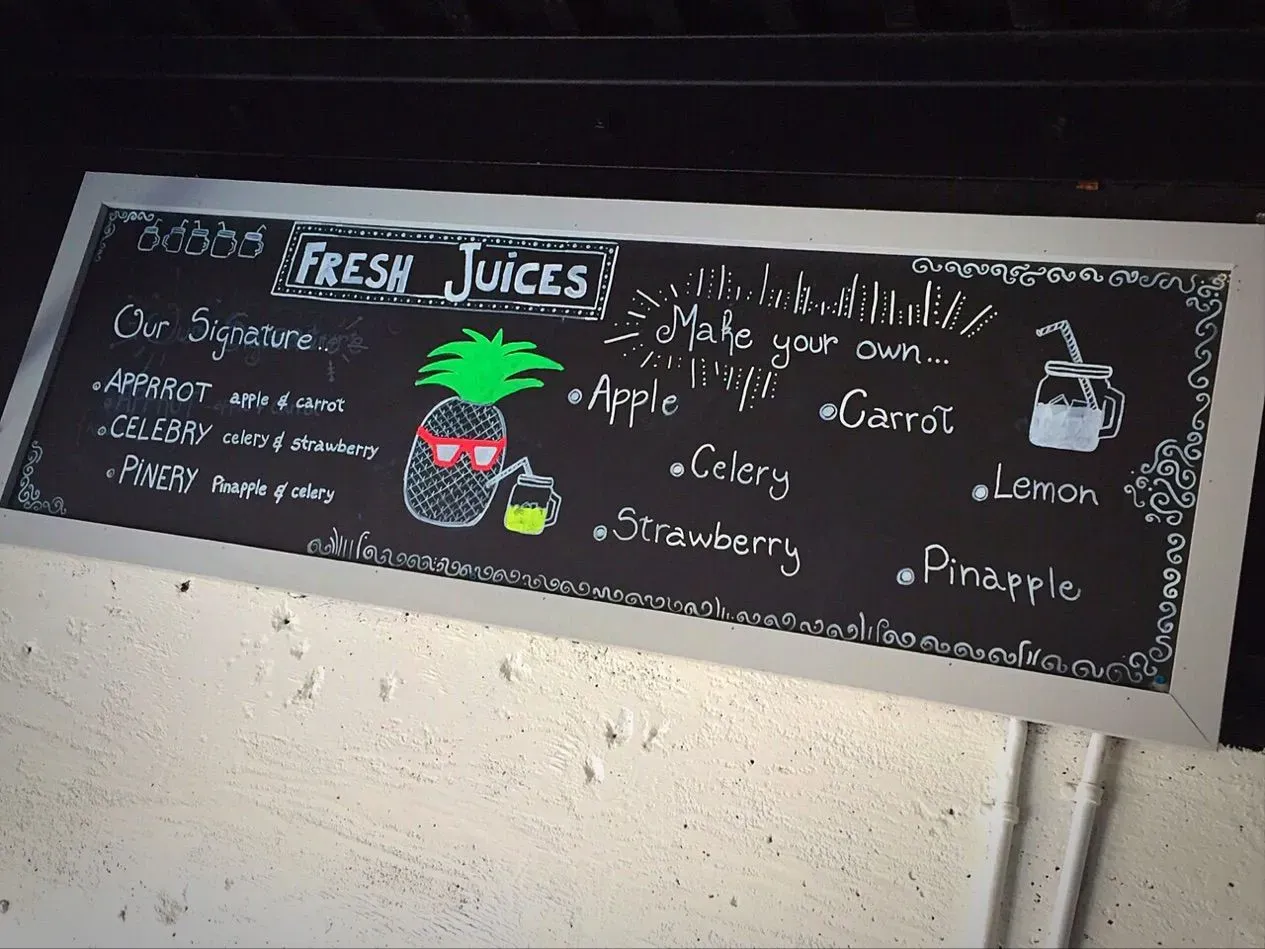 FRESH JUICES
Our Signature..
APPRROT apple & carrot
CELEBRY celery & strawberry
PINERY Pinapple & celery
Make your own...
Apple
Carrot
Celery
Lemon
Strawberry
Pinapple